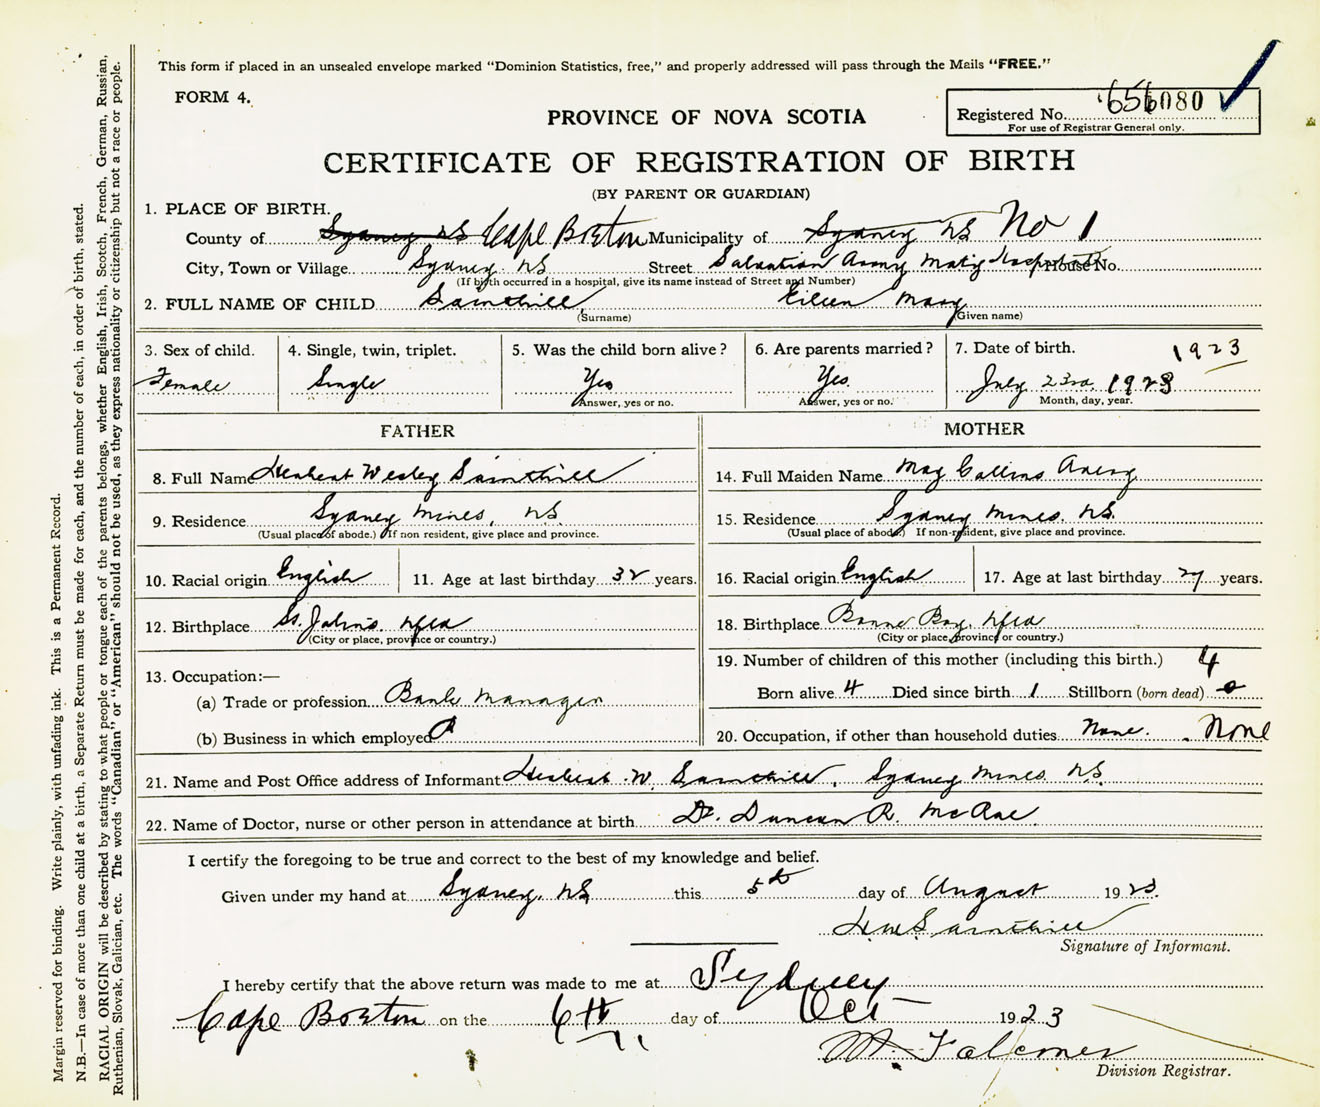 This form if placed in an unsealed envelope marked "Dominion Statistics, free," and properly addressed will pass through the Mails "FREE."
FORM 4.
Registered No. 656080
For use of Registrar General only.
PROVINCE OF NOVA SCOTIA
CERTIFICATE OF REGISTRATION OF BIRTH
(BY PARENT OR GUARDIAN)
1. PLACE OF BIRTH.
County of Sydney NS Cape Breton Municipality of Sydney NS No 1
City, Town or Village Sydney NS Street Salvation Army Maty Hospital House No.
(If birth occurred in a hospital, give its name instead of Street and Number)
2. FULL NAME OF CHILD Sainthill Eileen Mary
(Surname) (Given name)
3. Sex of child. 4. Single, twin, triplet. 5. Was the child born alive? 6. Are parents married? 7. Date of birth. 1923
Female Single Yes Yes July 23rd 1923
Answer, yes or no. Answer, yes or no. Month, day, year.
FATHER MOTHER
8. Full Name Herbert Wesley Sainthill 14. Full Maiden Name May Collins Avery
9. Residence Sydney Mines, NS 15. Residence Sydney Mines. NS.
(Usual place of abode.) If non resident, give place and province. (Usual place of abode.) If non-resident, give place and province.
10. Racial origin English 11. Age at last birthday 32 years. 16. Racial origin English 17. Age at last birthday 27 years.
12. Birthplace St. John's Nfld 18. Birthplace Bonne Bay, Nfld
(City or place, province or country.) (City or place, province or country.)
13. Occupation:— 19. Number of children of this mother (including this birth.) 4
(a) Trade or profession Bank Manager Born alive 4 Died since birth 1 Stillborn (born dead) 0
(b) Business in which employed 20. Occupation, if other than household duties None. None
21. Name and Post Office address of Informant Herbert W. Sainthill, Sydney Mines NS
22. Name of Doctor, nurse or other person in attendance at birth Dr. Duncan R. McRae
I certify the foregoing to be true and correct to the best of my knowledge and belief.
Given under my hand at Sydney, NS this 5th day of August 1923.
HW Sainthill
Signature of Informant.
I hereby certify that the above return was made to me at Sydney
Cape Breton on the 6th day of Oct 1923
Falconer
Division Registrar.
Margin reserved for binding. Write plainly, with unfading ink. This is a Permanent Record.
N.B.—In case of more than one child at a birth, a Separate Return must be made for each, and the number of each, in order of birth, stated.
RACIAL ORIGIN will be described by stating to what people or tongue each of the parents belongs, whether English, Irish, Scotch, French, German, Russian,
Ruthenian, Slovak, Galician, etc. The words "Canadian" or "American" should not be used, as they express nationality or citizenship but not a race or people.